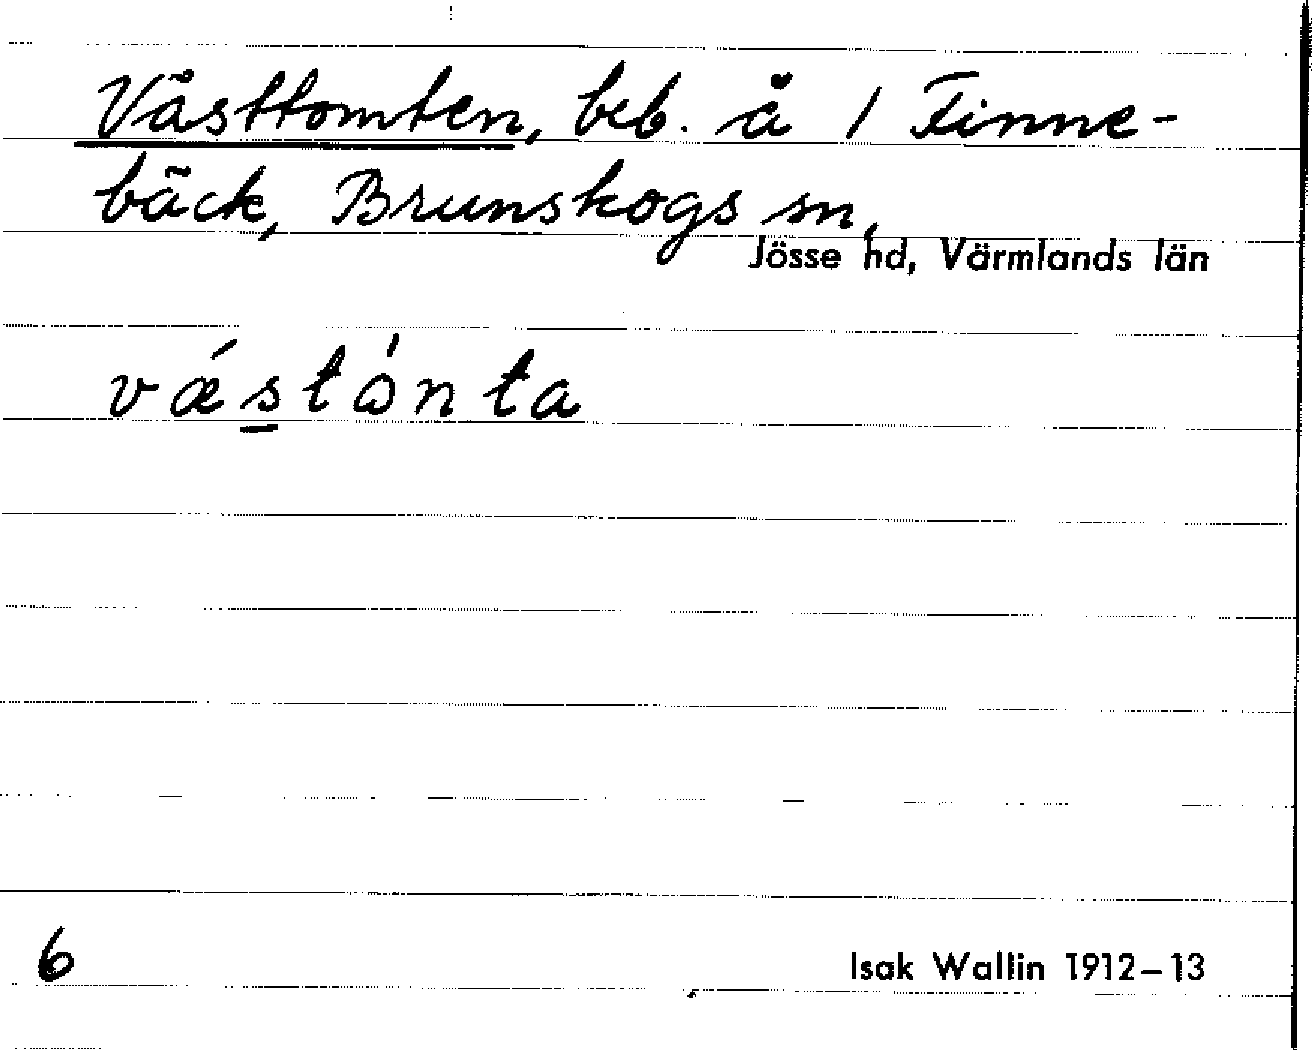 Västtomten, beb. å 1 Finne-
bäck, Brunskogs sn,
Jösse hd, Värmlands län
vǽstònta
6
Isak Wallin 1912–13